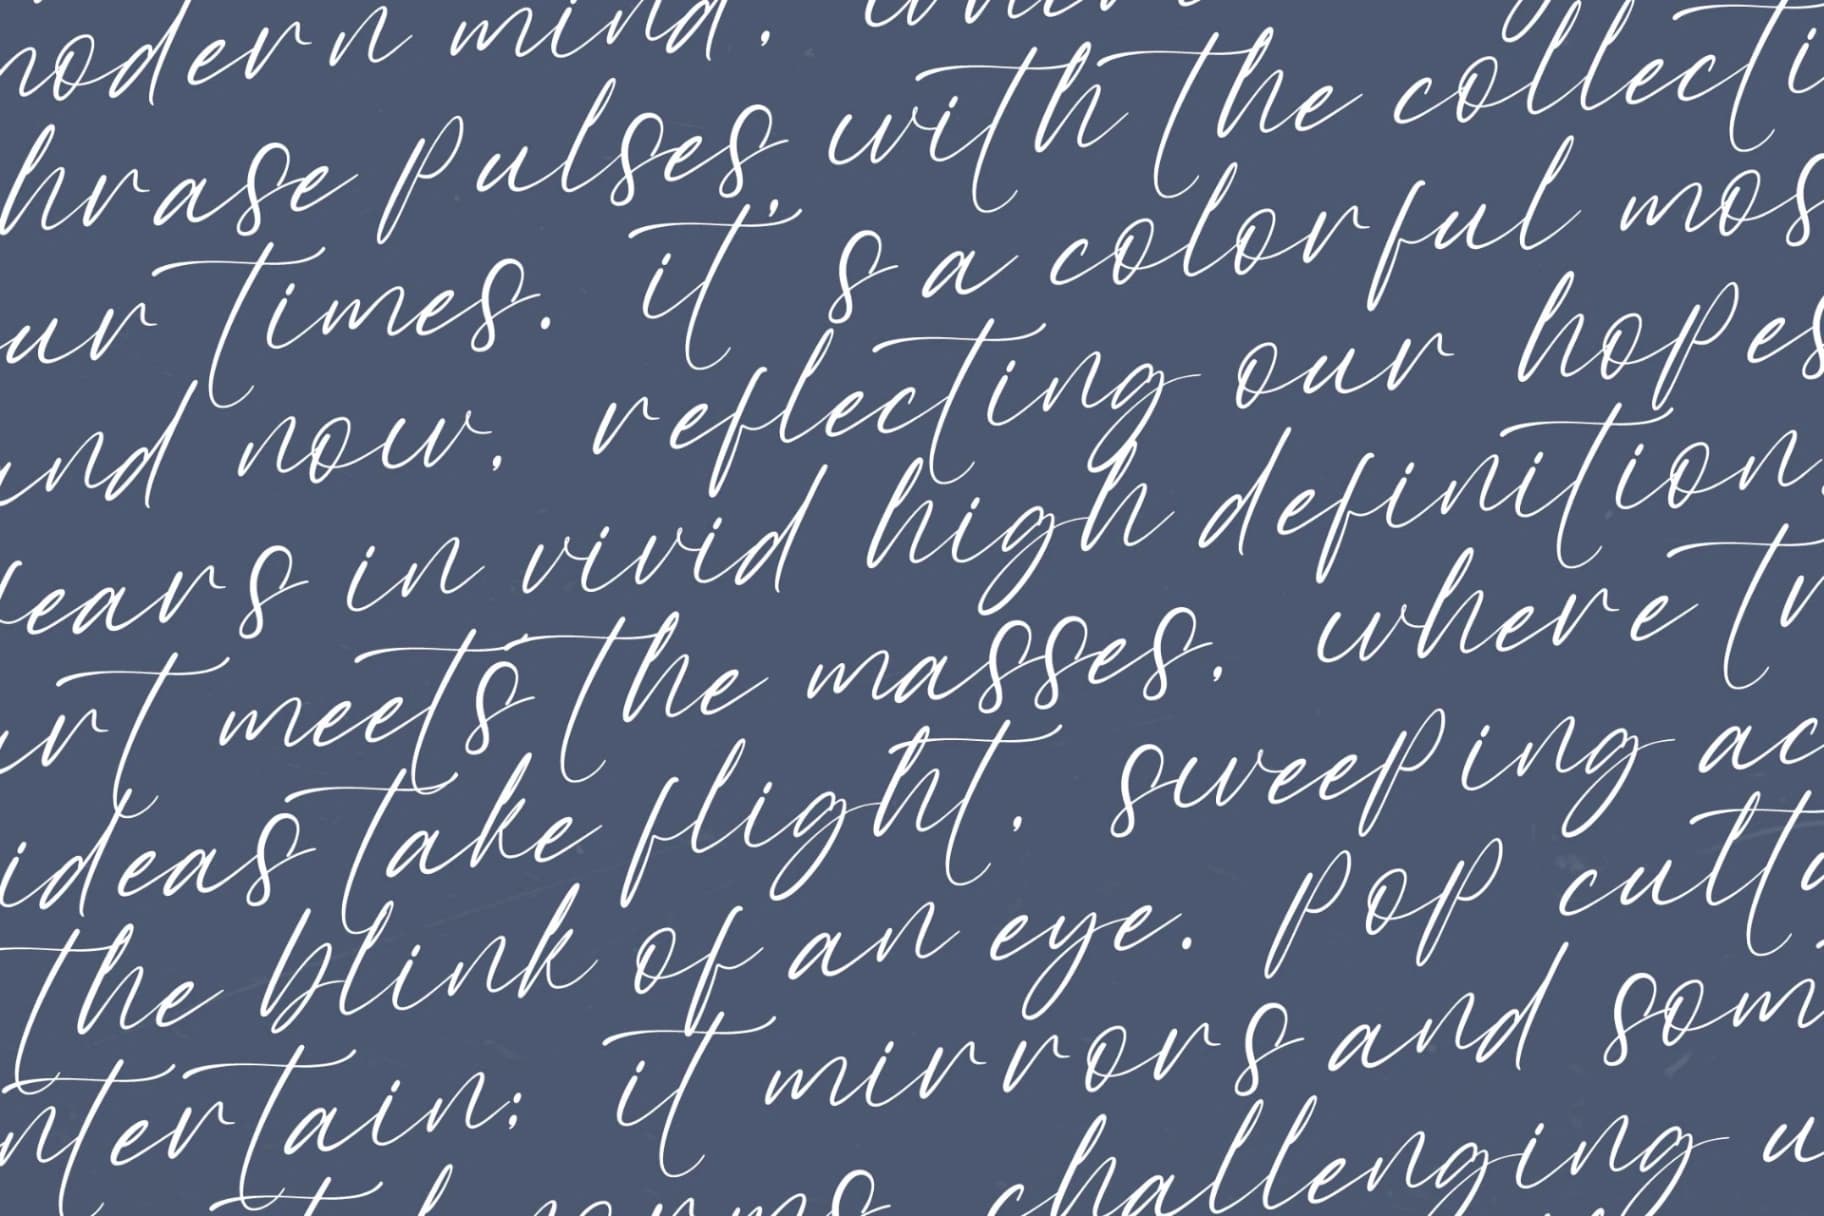 modern mind, where
phrase pulses with the collecti
our times. it's a colorful mos
and now, reflecting our hopes
fears in vivid high definition.
art meets the masses, where tr
ideas take flight, sweeping ac
the blink of an eye. pop cult
entertain; it mirrors and som
norms challenging u